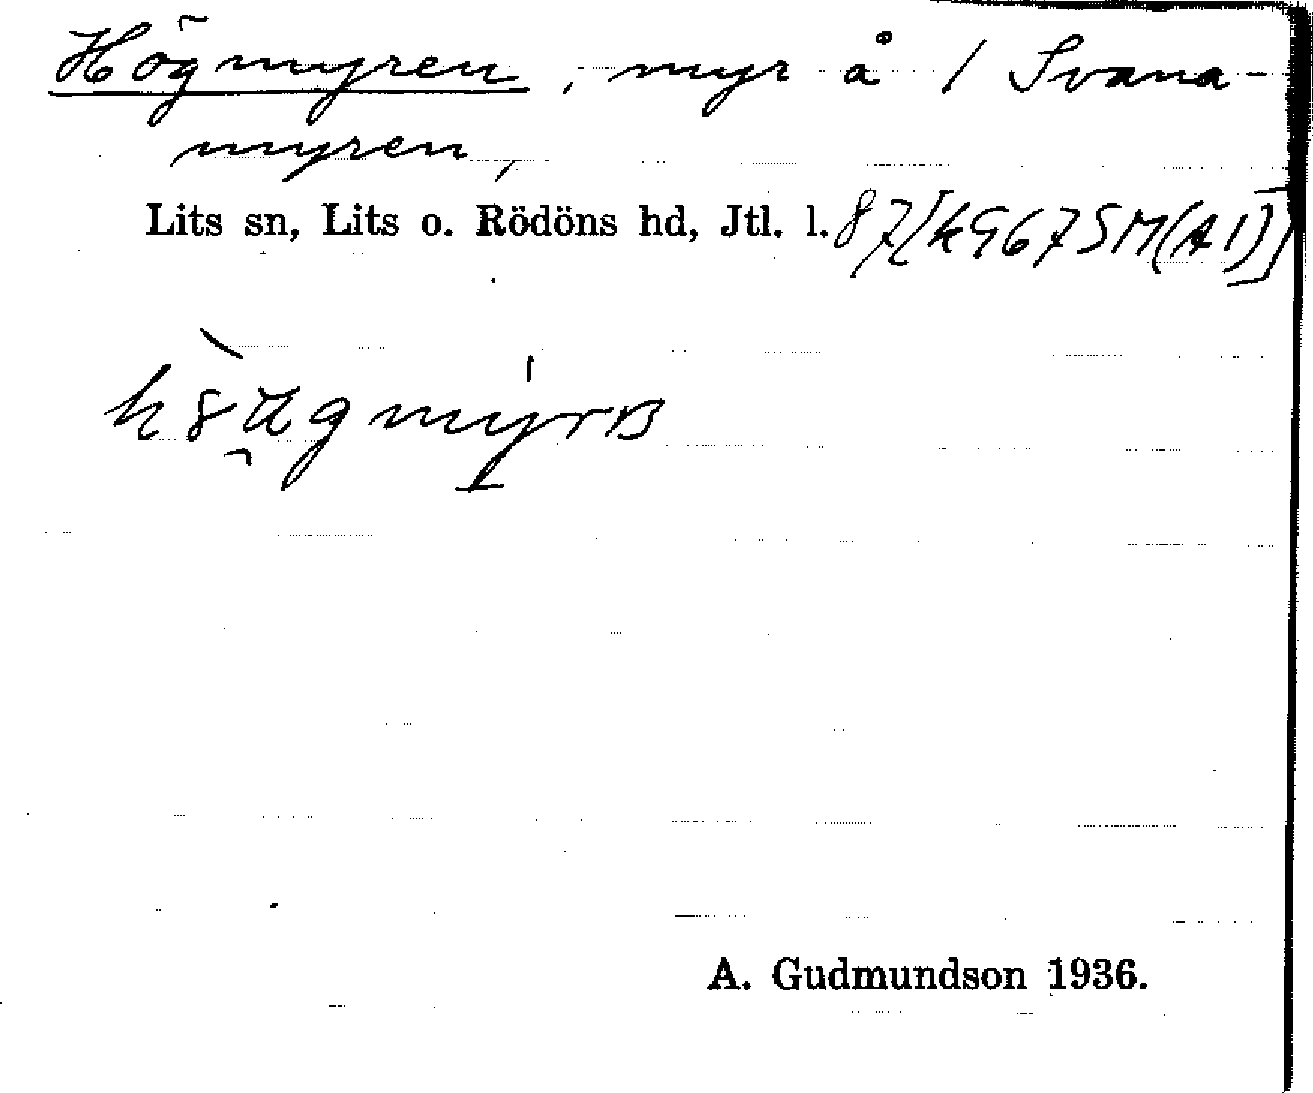 Högmyren, myr å 1 Svana-
myren,
Lits sn, Lits o. Rödöns hd, Jtl. l. 87[k9675M(A1)]
A. Gudmundson 1936.